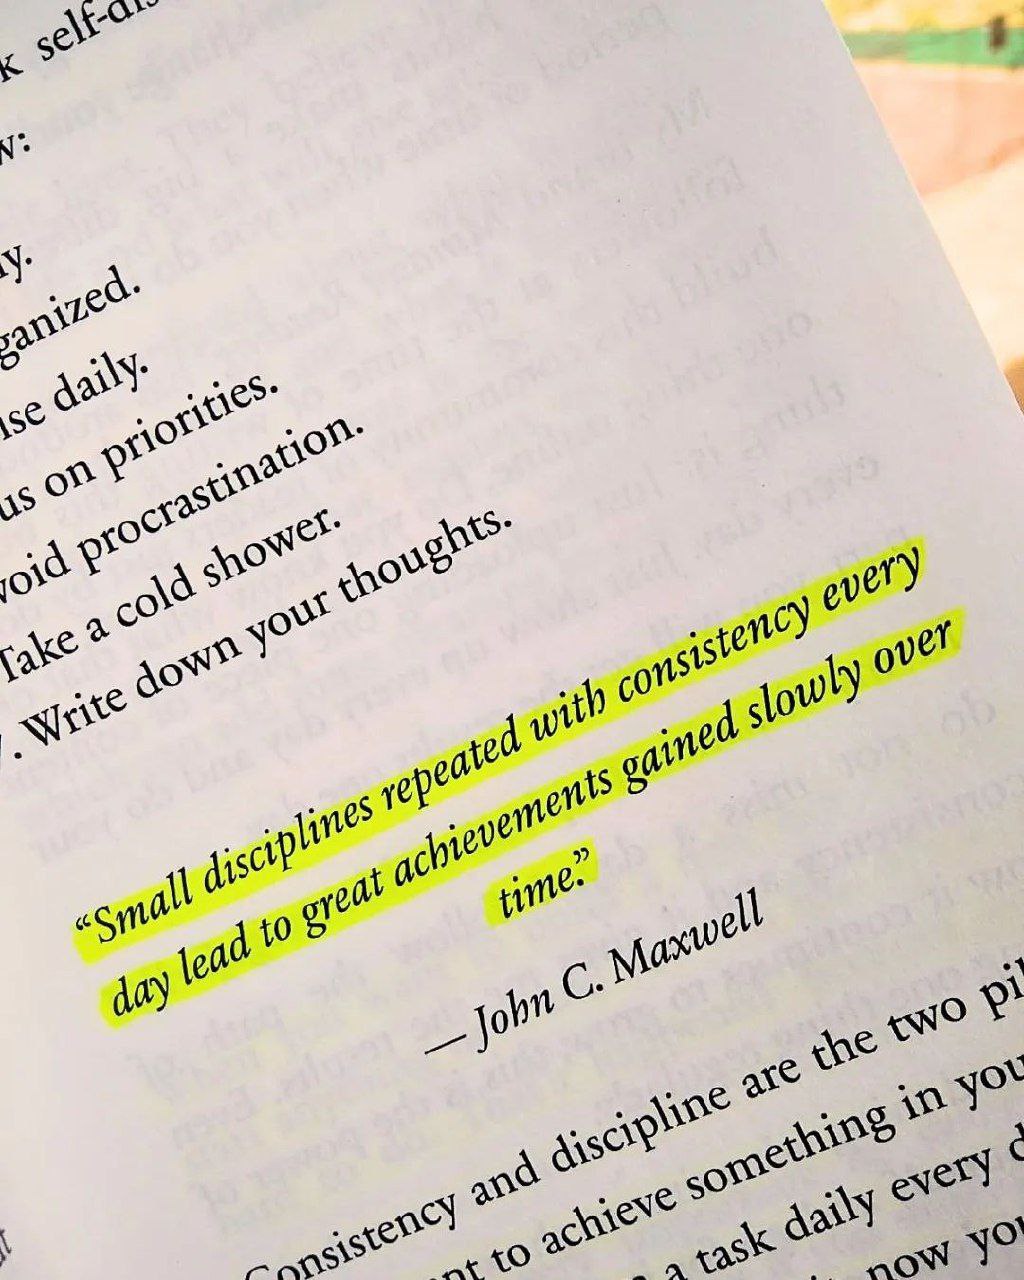 self-dis
w:
ganized.
daily.
on priorities.
procrastination.
Take a cold shower.
. Write down your thoughts.
“Small disciplines repeated with consistency every
day lead to great achievements gained slowly over
time.”
— John C. Maxwell
Consistency and discipline are the two pil
to achieve something in you
a task daily every d
now you